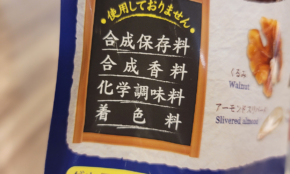 使用しておりません
合成保存料
合成香料
化学調味料
着色料
くるみ
Walnut
アーモンドスリーバード
Slivered almond